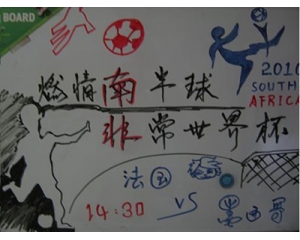 BOARD
燃情南半球
2010
SOUTH
AFRICA
非常世界杯
法国
14:30 VS 墨西哥